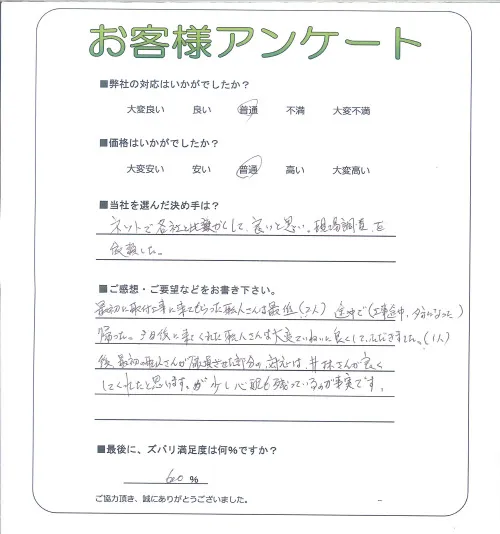 お客様アンケート
■弊社の対応はいかがでしたか?
大変良い 良い 普通 不満 大変不満
■価格はいかがでしたか?
大変安い 安い 普通 高い 大変高い
■当社を選んだ決め手は?
ネットで各社と比較して、良いと思い。現場調査を
依頼した。
■ご感想・ご要望などをお書き下さい。
最初に取付工事に来てもらった職人さんは最低(2人) 途中で(工事途中、夕方になった)
帰った。3日後に来てくれた職人さんは大変ていねいに良くしていただきました。(1人)
後、最初の職人さんが破損させた部分の対応は、さんが良く
してくれたと思います。が少し心配も残っているのが事実です。
■最後に、ズバリ満足度は何%ですか?
60 %
ご協力頂き、誠にありがとうございました。